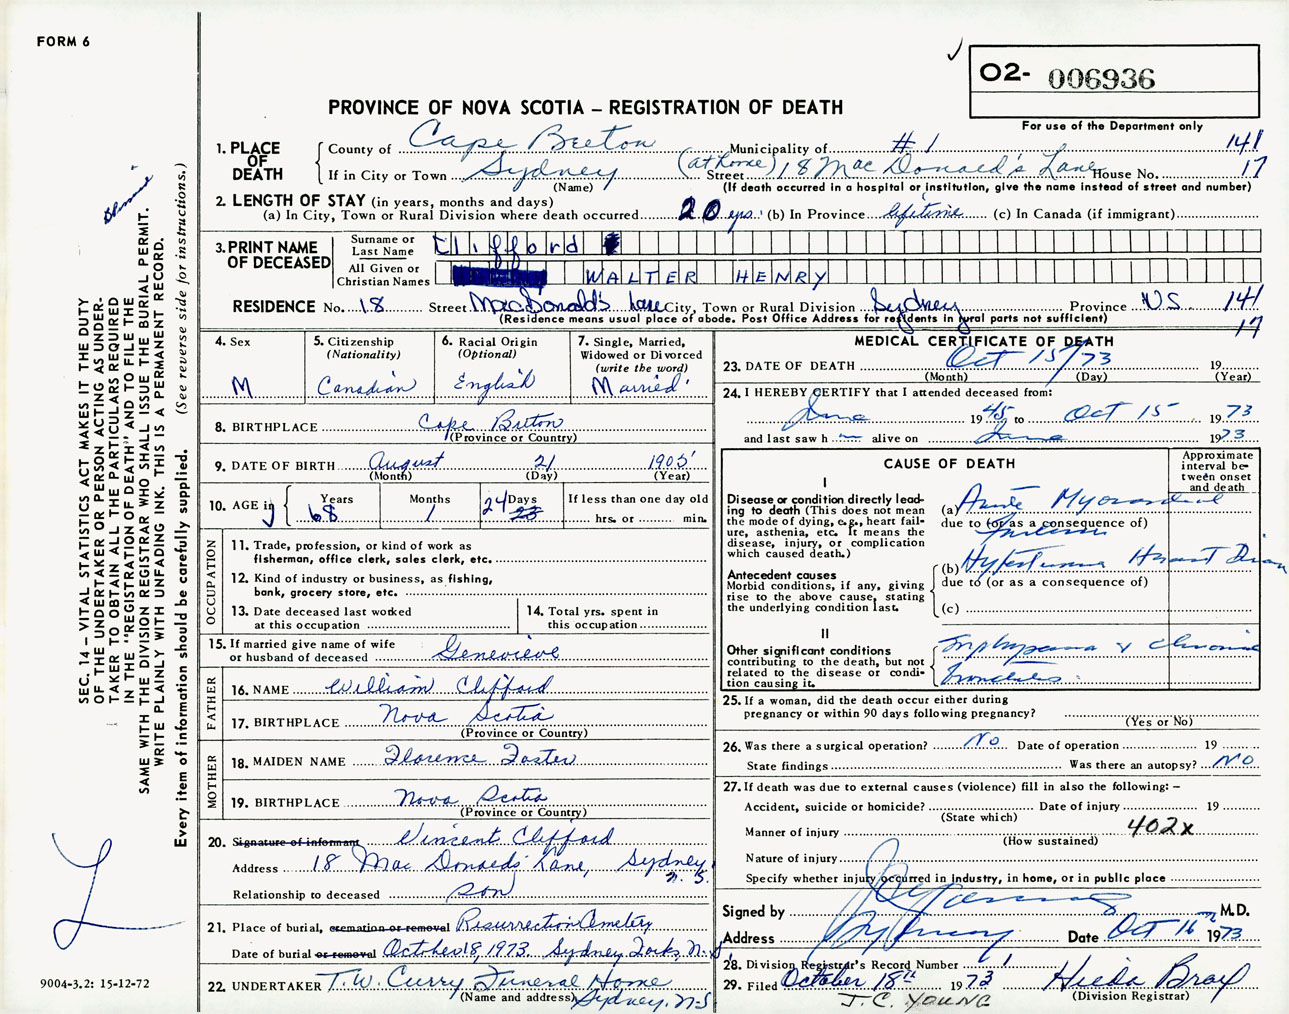 FORM 6
O2- 006936
For use of the Department only
PROVINCE OF NOVA SCOTIA – REGISTRATION OF DEATH
1. PLACE OF DEATH
County of Cape Breton Municipality of # 1 141
If in City or Town Sydney (at home) Street 18 MacDonald's Lane House No. 17
(Name) (If death occurred in a hospital or institution, give the name instead of street and number)
2. LENGTH OF STAY (in years, months and days)
(a) In City, Town or Rural Division where death occurred 20 yrs. (b) In Province lifetime (c) In Canada (if immigrant)
3. PRINT NAME OF DECEASED
Surname or Last Name Clifford
All Given or Christian Names WALTER HENRY
RESIDENCE No. 18 Street MacDonald's Lane City, Town or Rural Division Sydney Province NS 141
(Residence means usual place of abode. Post Office Address for residents in rural parts not sufficient) 17
4. Sex
M
5. Citizenship (Nationality)
Canadian
6. Racial Origin (Optional)
English
7. Single, Married, Widowed or Divorced (write the word)
Married
8. BIRTHPLACE Cape Breton
(Province or Country)
9. DATE OF BIRTH August 21 1905
(Month) (Day) (Year)
10. AGE in Years 68 Months 1 Days 24 23 If less than one day old
hrs. or min.
OCCUPATION
11. Trade, profession, or kind of work as fisherman, office clerk, sales clerk, etc.
12. Kind of industry or business, as fishing, bank, grocery store, etc.
13. Date deceased last worked at this occupation
14. Total yrs. spent in this occupation
15. If married give name of wife or husband of deceased Genevieve
FATHER
16. NAME William Clifford
17. BIRTHPLACE Nova Scotia
(Province or Country)
MOTHER
18. MAIDEN NAME Florence Foster
19. BIRTHPLACE Nova Scotia
(Province or Country)
20. Signature of informant Vincent Clifford
Address 18 MacDonald's Lane, Sydney N.S.
Relationship to deceased son
21. Place of burial, cremation or removal Resurrection Cemetery
Date of burial or removal October 18, 1973. Sydney Forks, N.S.
22. UNDERTAKER T.W. Curry Funeral Home
(Name and address) Sydney, N.S
MEDICAL CERTIFICATE OF DEATH
23. DATE OF DEATH Oct 15/73 19
(Month) (Day) (Year)
24. I HEREBY CERTIFY that I attended deceased from:
June 1945 to Oct 15 1973
and last saw h alive on June 1973
CAUSE OF DEATH
Approximate interval between onset and death
I
Disease or condition directly leading to death (This does not mean the mode of dying, e.g., heart failure, asthenia, etc. It means the disease, injury, or complication which caused death.)
(a) Acute Myocardial
due to (or as a consequence of)
Antecedent causes
Morbid conditions, if any, giving rise to the above cause, stating the underlying condition last.
(b) Hypertensive Heart Disease
due to (or as a consequence of)
(c)
II
Other significant conditions contributing to the death, but not related to the disease or condition causing it.
Emphysema & chronic
bronchitis
25. If a woman, did the death occur either during pregnancy or within 90 days following pregnancy?
(Yes or No)
26. Was there a surgical operation? No Date of operation 19
State findings Was there an autopsy? No
27. If death was due to external causes (violence) fill in also the following: –
Accident, suicide or homicide? Date of injury 19
(State which)
Manner of injury 402x
(How sustained)
Nature of injury
Specify whether injury occurred in industry, in home, or in public place
Signed by M.D.
Address Sydney Date Oct 16 1973
28. Division Registrar's Record Number 1
29. Filed October 18th 1973 Hilda Bray
J.C. YOUNG (Division Registrar)
SEC. 14 – VITAL STATISTICS ACT MAKES IT THE DUTY
OF THE UNDERTAKER OR PERSON ACTING AS UNDER-
TAKER TO OBTAIN ALL THE PARTICULARS REQUIRED
IN THE "REGISTRATION OF DEATH" AND TO FILE THE
SAME WITH THE DIVISION REGISTRAR WHO SHALL ISSUE THE BURIAL PERMIT.
WRITE PLAINLY WITH UNFADING INK. THIS IS A PERMANENT RECORD.
Every item of information should be carefully supplied. (See reverse side for instructions.)
9004-3.2: 15-12-72